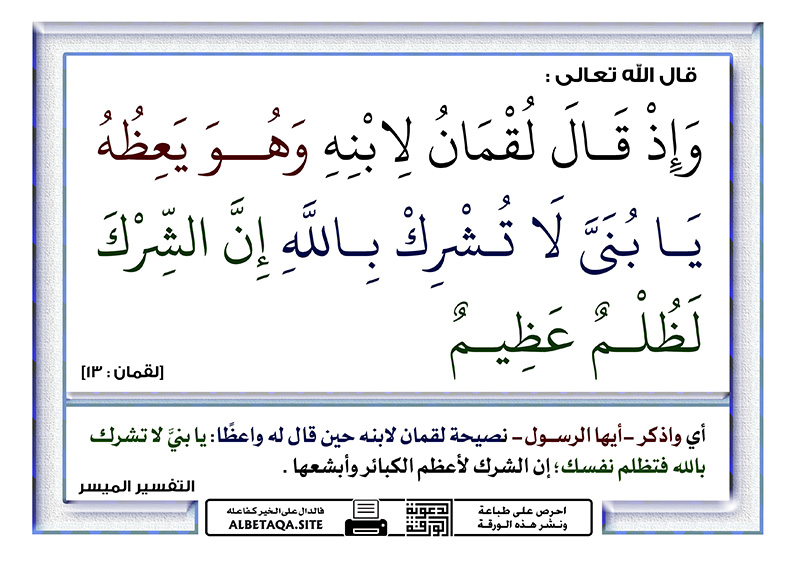 قال الله تعالى :
وَإِذْ قَالَ لُقْمَانُ لِابْنِهِ وَهُوَ يَعِظُهُ
يَا بُنَيَّ لَا تُشْرِكْ بِاللَّهِ إِنَّ الشِّرْكَ
لَظُلْمٌ عَظِيمٌ
[لقمان : ١٣]
أي واذكر -أيها الرسول- نصيحة لقمان لابنه حين قال له واعظًا: يا بنيَّ لا تشرك
بالله فتظلم نفسك؛ إن الشرك لأعظم الكبائر وأبشعها .
التفسير الميسر
احرص على طباعة
ونشر هذه الورقة
الورقة
الدعوية
فالدال على الخير كفاعله
ALBETAQA.SITE